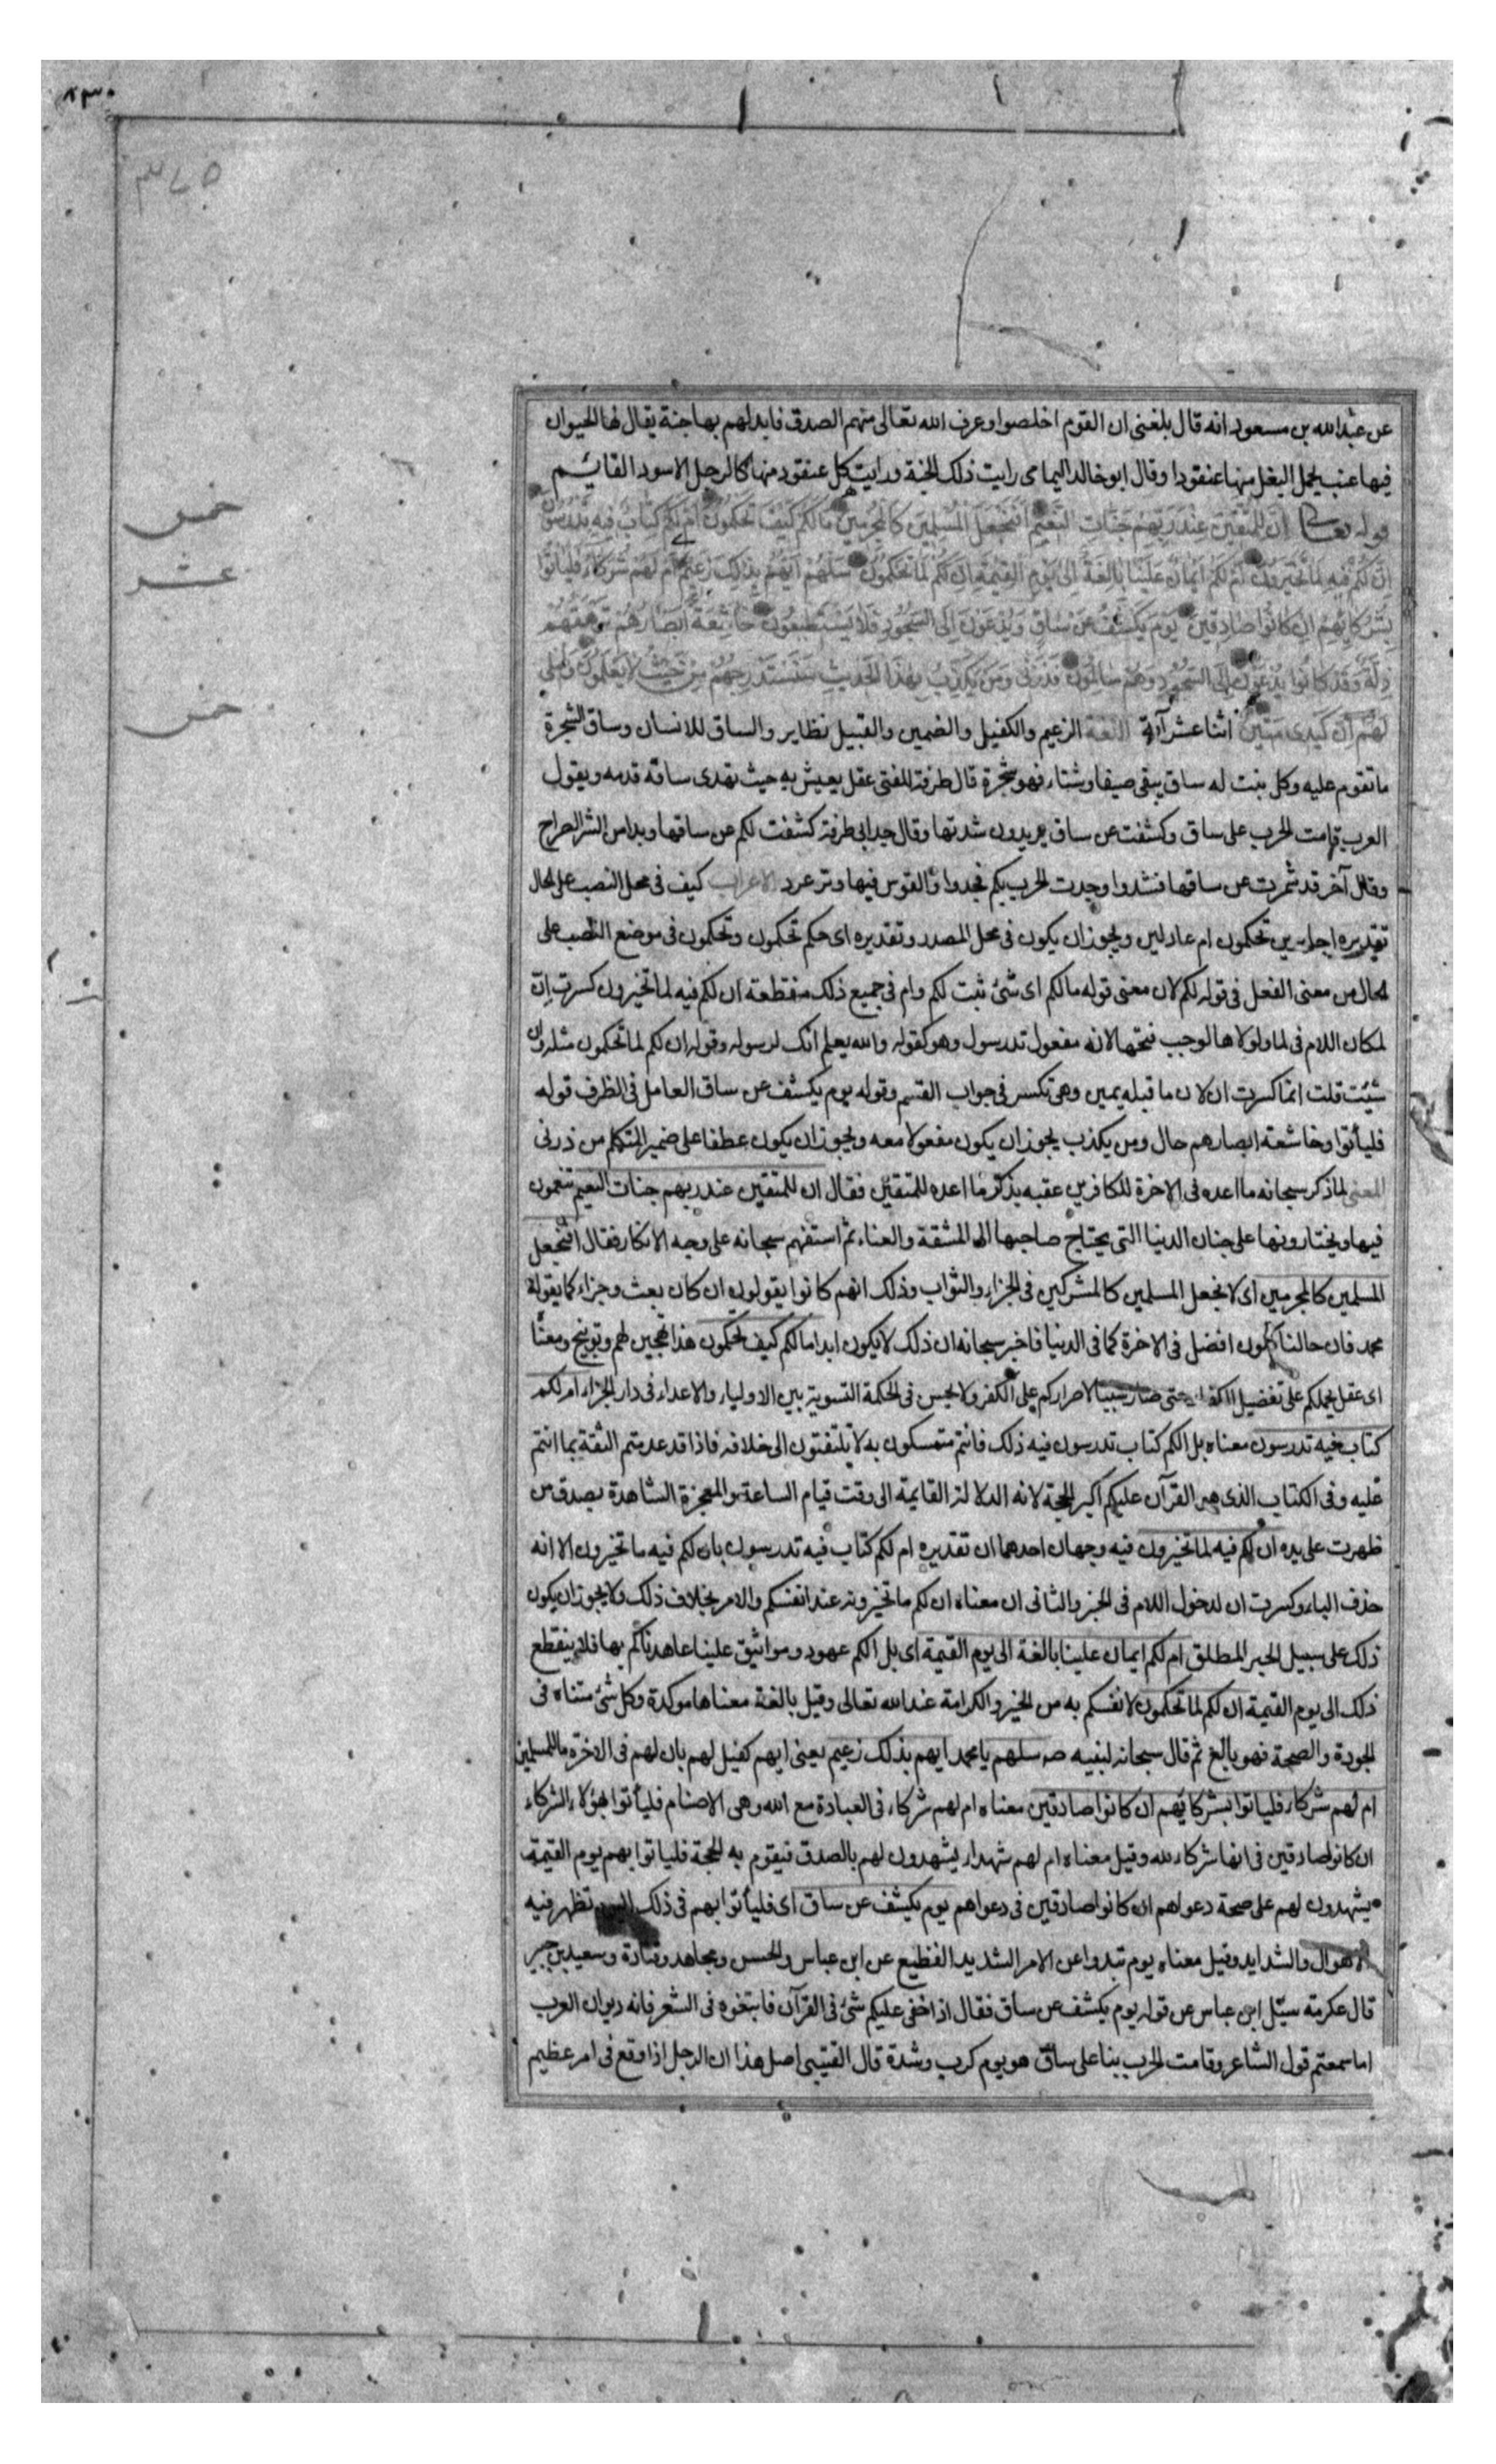 عن عبدالله بن مسعود انه قال بلغنى ان القوم اخلصوا وعرف الله تعالى منهم الصدق فابدلهم بها جنة يقال لها الحيوان
فيها عنب يحمل البغل منها عنقودا وقال ابو خالد اليمامى رايت ذلك الجنة ورايت كل عنقود منها كالرجل الاسود القائم
قوله تعالى ان للمتقين عند ربهم جنات النعيم افنجعل المسلمين كالمجرمين مالكم كيف تحكمون ام لكم كتاب فيه تدرسون
ان لكم فيه لما تخيرون ام لكم ايمان علينا بالغة الى يوم القيمة ان لكم لما تحكمون سلهم ايهم بذلك زعيم ام لهم شركاء فليأتوا
بشركائهم ان كانوا صادقين يوم يكشف عن ساق ويدعون الى السجود فلا يستطيعون خاشعة ابصارهم ترهقهم
ذلة وقد كانوا يدعون الى السجود وهم سالمون فذرنى ومن يكذب بهذا الحديث سنستدرجهم من حيث لا يعلمون واملى
لهم ان كيدى متين اثنا عشر آية اللغة الزعيم والكفيل والضمين والقبيل نظاير والساق للانسان وساق الشجرة
ما تقوم عليه وكل بنت له ساق يبقى صيفا وشتاء فهو شجرة قال طرفة للفتى عقل يعيش به حيث تهدى ساقه قدمه ويقول
العرب قامت الحرب على ساق وكشفت عن ساق يريدون شدتها وقال جد ابى طرفة كشفت لكم عن ساقها وبدا من الشر الصراح
وقال آخر قد شمرت عن ساقها فشدوا وجدت الحرب بكم فجدوا والقوس فيها وتر عرد الاعراب كيف فى محل النصب على الحال
تقديره اجايرين تحكمون ام عادلين ويجوز ان يكون فى محل المصدر وتقديره اى حكم تحكمون وتحكمون فى موضع النصب على
الحال من معنى الفعل فى قوله لكم لان معنى قوله مالكم اى شئ ثبت لكم وام فى جميع ذلك منقطعة ان لكم فيه لما تخيرون كسرت ان
لمكان اللام فى لما ولولاها لوجب فتحها لانه مفعول تدرسون وهو كقوله والله يعلم انك لرسوله وقوله ان لكم لما تحكمون مثله وان
شئت قلت انما كسرت ان لان ما قبله يمين وهى تكسر فى جواب القسم وقوله يوم يكشف عن ساق العامل فى الظرف قوله
فليأتوا وخاشعة ابصارهم حال ومن يكذب يجوز ان يكون مفعولا معه ويجوز ان يكون عطفا على ضمير المتكلم من ذرنى
المعنى لما ذكر سبحانه ما اعده فى الاخرة للكافرين عقبه بذكر ما اعده للمتقين فقال ان للمتقين عند ربهم جنات النعيم تنعمون
فيها ويختارونها على جنان الدنيا التى يحتاج صاحبها الى المشقة والعناء ثم استفهم سبحانه على وجه الانكار فقال افنجعل
المسلمين كالمجرمين اى لا نجعل المسلمين كالمشركين فى الجزاء والثواب وذلك انهم كانوا يقولون ان كان بعث وجزاء كما يقوله
محمد فان حالنا تكون افضل فى الاخرة كما فى الدنيا فاخبر سبحانه ان ذلك لا يكون ابدا مالكم كيف تحكمون هذا تهجين لهم وتوبيخ ومعناه
اى عقل يحملكم على تفضيل الكفار حتى صار سببا لاصراركم على الكفر ولا يحسن فى الحكمة التسوية بين الاولياء والاعداء فى دار الجزاء ام لكم
كتاب فيه تدرسون معناه بل الكم كتاب تدرسون فيه ذلك فانتم متمسكون به لا تلتفتون الى خلافه فاذا قد عدمتم الثقة بما انتم
عليه وفى الكتاب الذى هو القرآن عليكم اكبر الحجة لانه الدلالة القايمة الى وقت قيام الساعة والمعجزة الشاهدة بصدق من
ظهرت على يده ان لكم فيه لما تخيرون فيه وجهان احدهما ان تقديره ام لكم كتاب فيه تدرسون بان لكم فيه ما تخيرون الا انه
حذف الباء وكسرت ان لدخول اللام فى الخبر والثانى ان معناه ان لكم ما تخيرونه عند انفسكم والامر بخلاف ذلك ولا يجوز ان يكون
ذلك على سبيل الخبر المطلق ام لكم ايمان علينا بالغة الى يوم القيمة اى بل الكم عهود ومواثيق علينا عاهدناكم بها فلا ينقطع
ذلك الى يوم القيمة ان لكم لما تحكمون لانفسكم به من الخير والكرامة عند الله تعالى وقيل بالغة معناها موكدة وكل شئ متناه فى
الجودة والصحة فهو بالغ ثم قال سبحانه لنبيه ص سلهم يا محمد ايهم بذلك زعيم يعنى ايهم كفيل لهم بان لهم فى الاخرة ما للمسلمين
ام لهم شركاء فليأتوا بشركائهم ان كانوا صادقين معناه ام لهم شركاء فى العبادة مع الله وهى الاصنام فليأتوا بهؤلاء الشركاء
ان كانوا صادقين فى انها شركاء لله وقيل معناه ام لهم شهداء يشهدون لهم بالصدق فيقوم به الحجة فلياتوا بهم يوم القيمة
يشهدون لهم على صحة دعواهم ان كانوا صادقين فى دعواهم يوم يكشف عن ساق اى فليأتوا بهم فى ذلك اليوم تظهر فيه
الاهوال والشدايد وقيل معناه يوم تبدوا عن الامر الشديد الفظيع عن ابن عباس والحسن ومجاهد وقتادة وسعيد بن جبير
قال عكرمة سئل ابن عباس عن قوله يوم يكشف عن ساق فقال اذا خفى عليكم شئ فى القرآن فابتغوه فى الشعر فانه ديوان العرب
اما سمعتم قول الشاعر وقامت الحرب بنا على ساق هو يوم كرب وشدة قال القتيبى اصل هذا ان الرجل اذا وقع فى امر عظيم
خمس
عشر
خمس